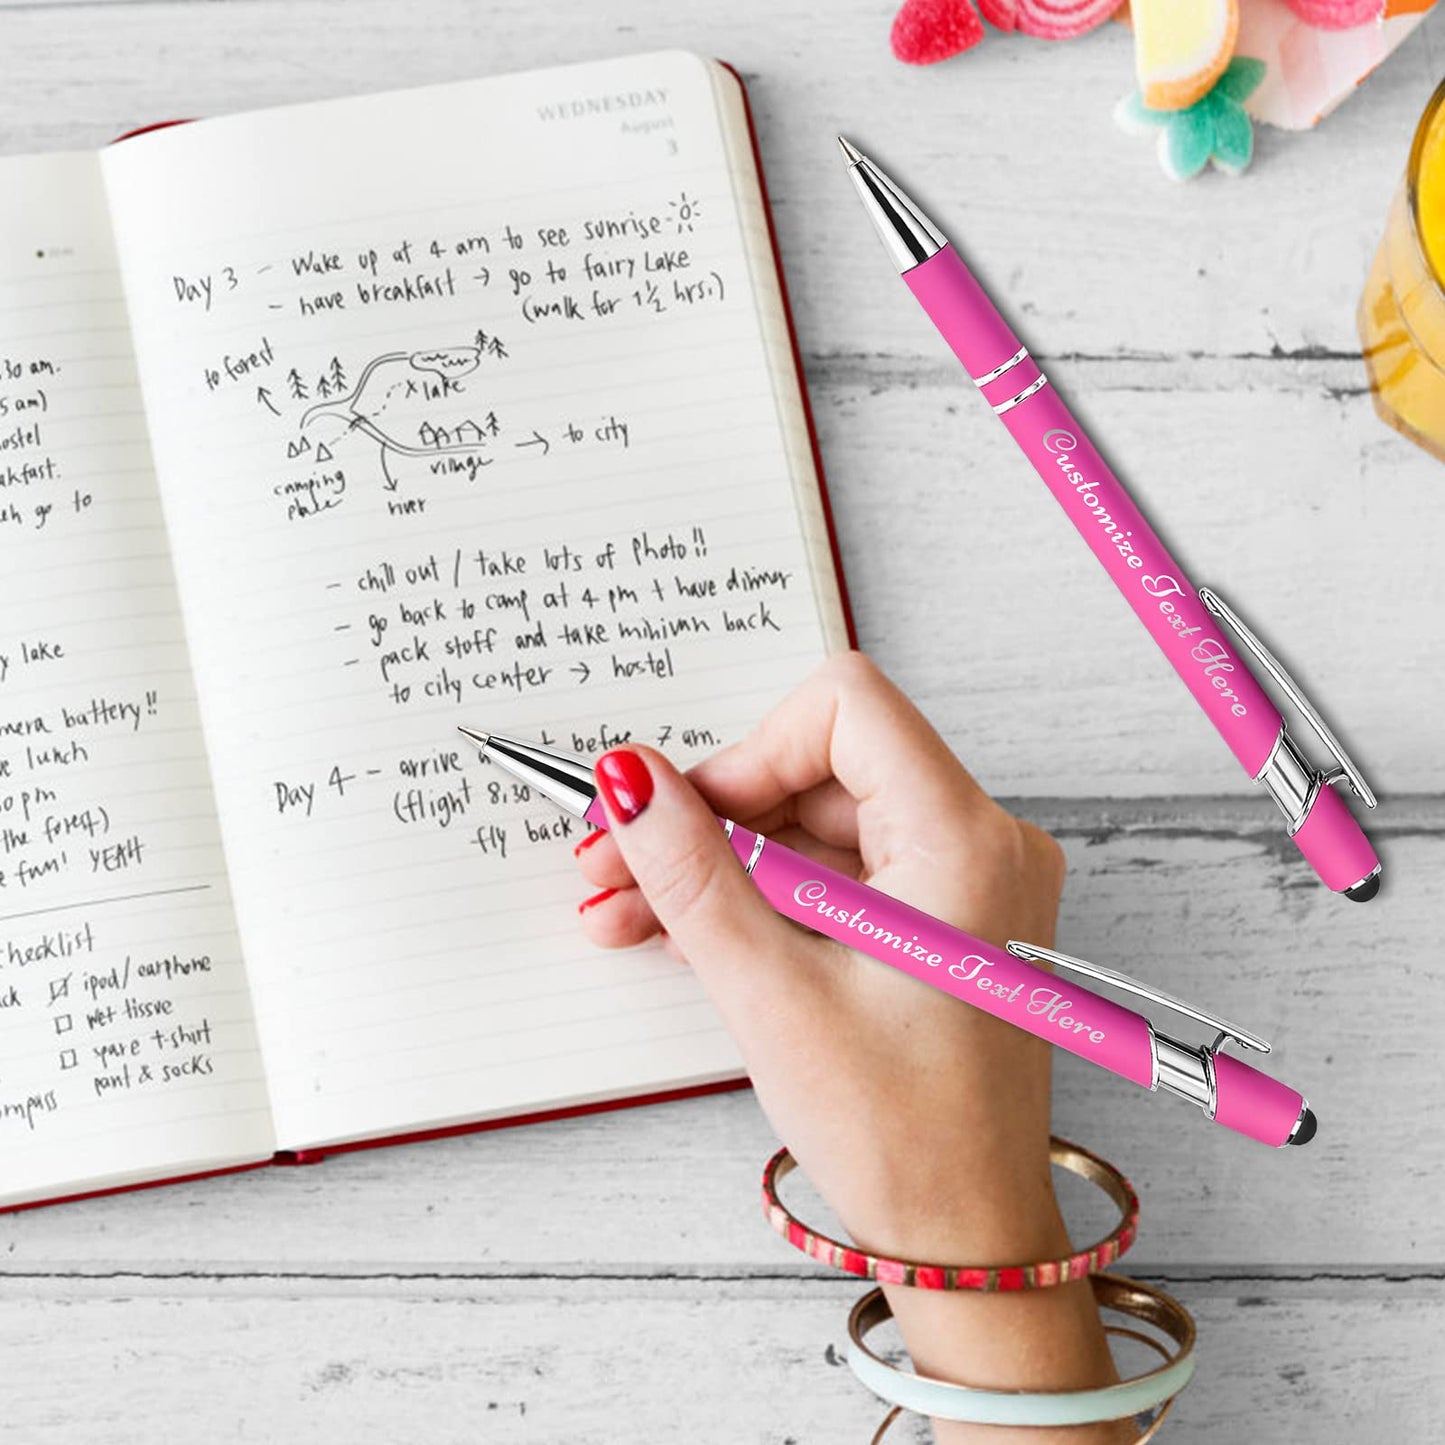 .30 am.
5 am)
ostel
akfast.
go to
y lake
mera battery!!
lunch
pm
the forest)
fun! YEAH
checklist
ipod/earphone
wet tissue
spare t-shirt
pant & socks
ompass
WEDNESDAY
August
3
Day 3 - Wake up at 4 am to see sunrise
- have breakfast → go to fairy Lake
(walk for 1½ hrs.)
to forest
x lake
village
→ to city
camping
place
river
- chill out / take lots of photo!!
- go back to camp at 4 pm + have dinner
- pack stuff and take minivan back
to city center → hostel
Day 4 - arrive before 7 am.
(flight 8.30
fly back
Customize Text Here
Customize Text Here